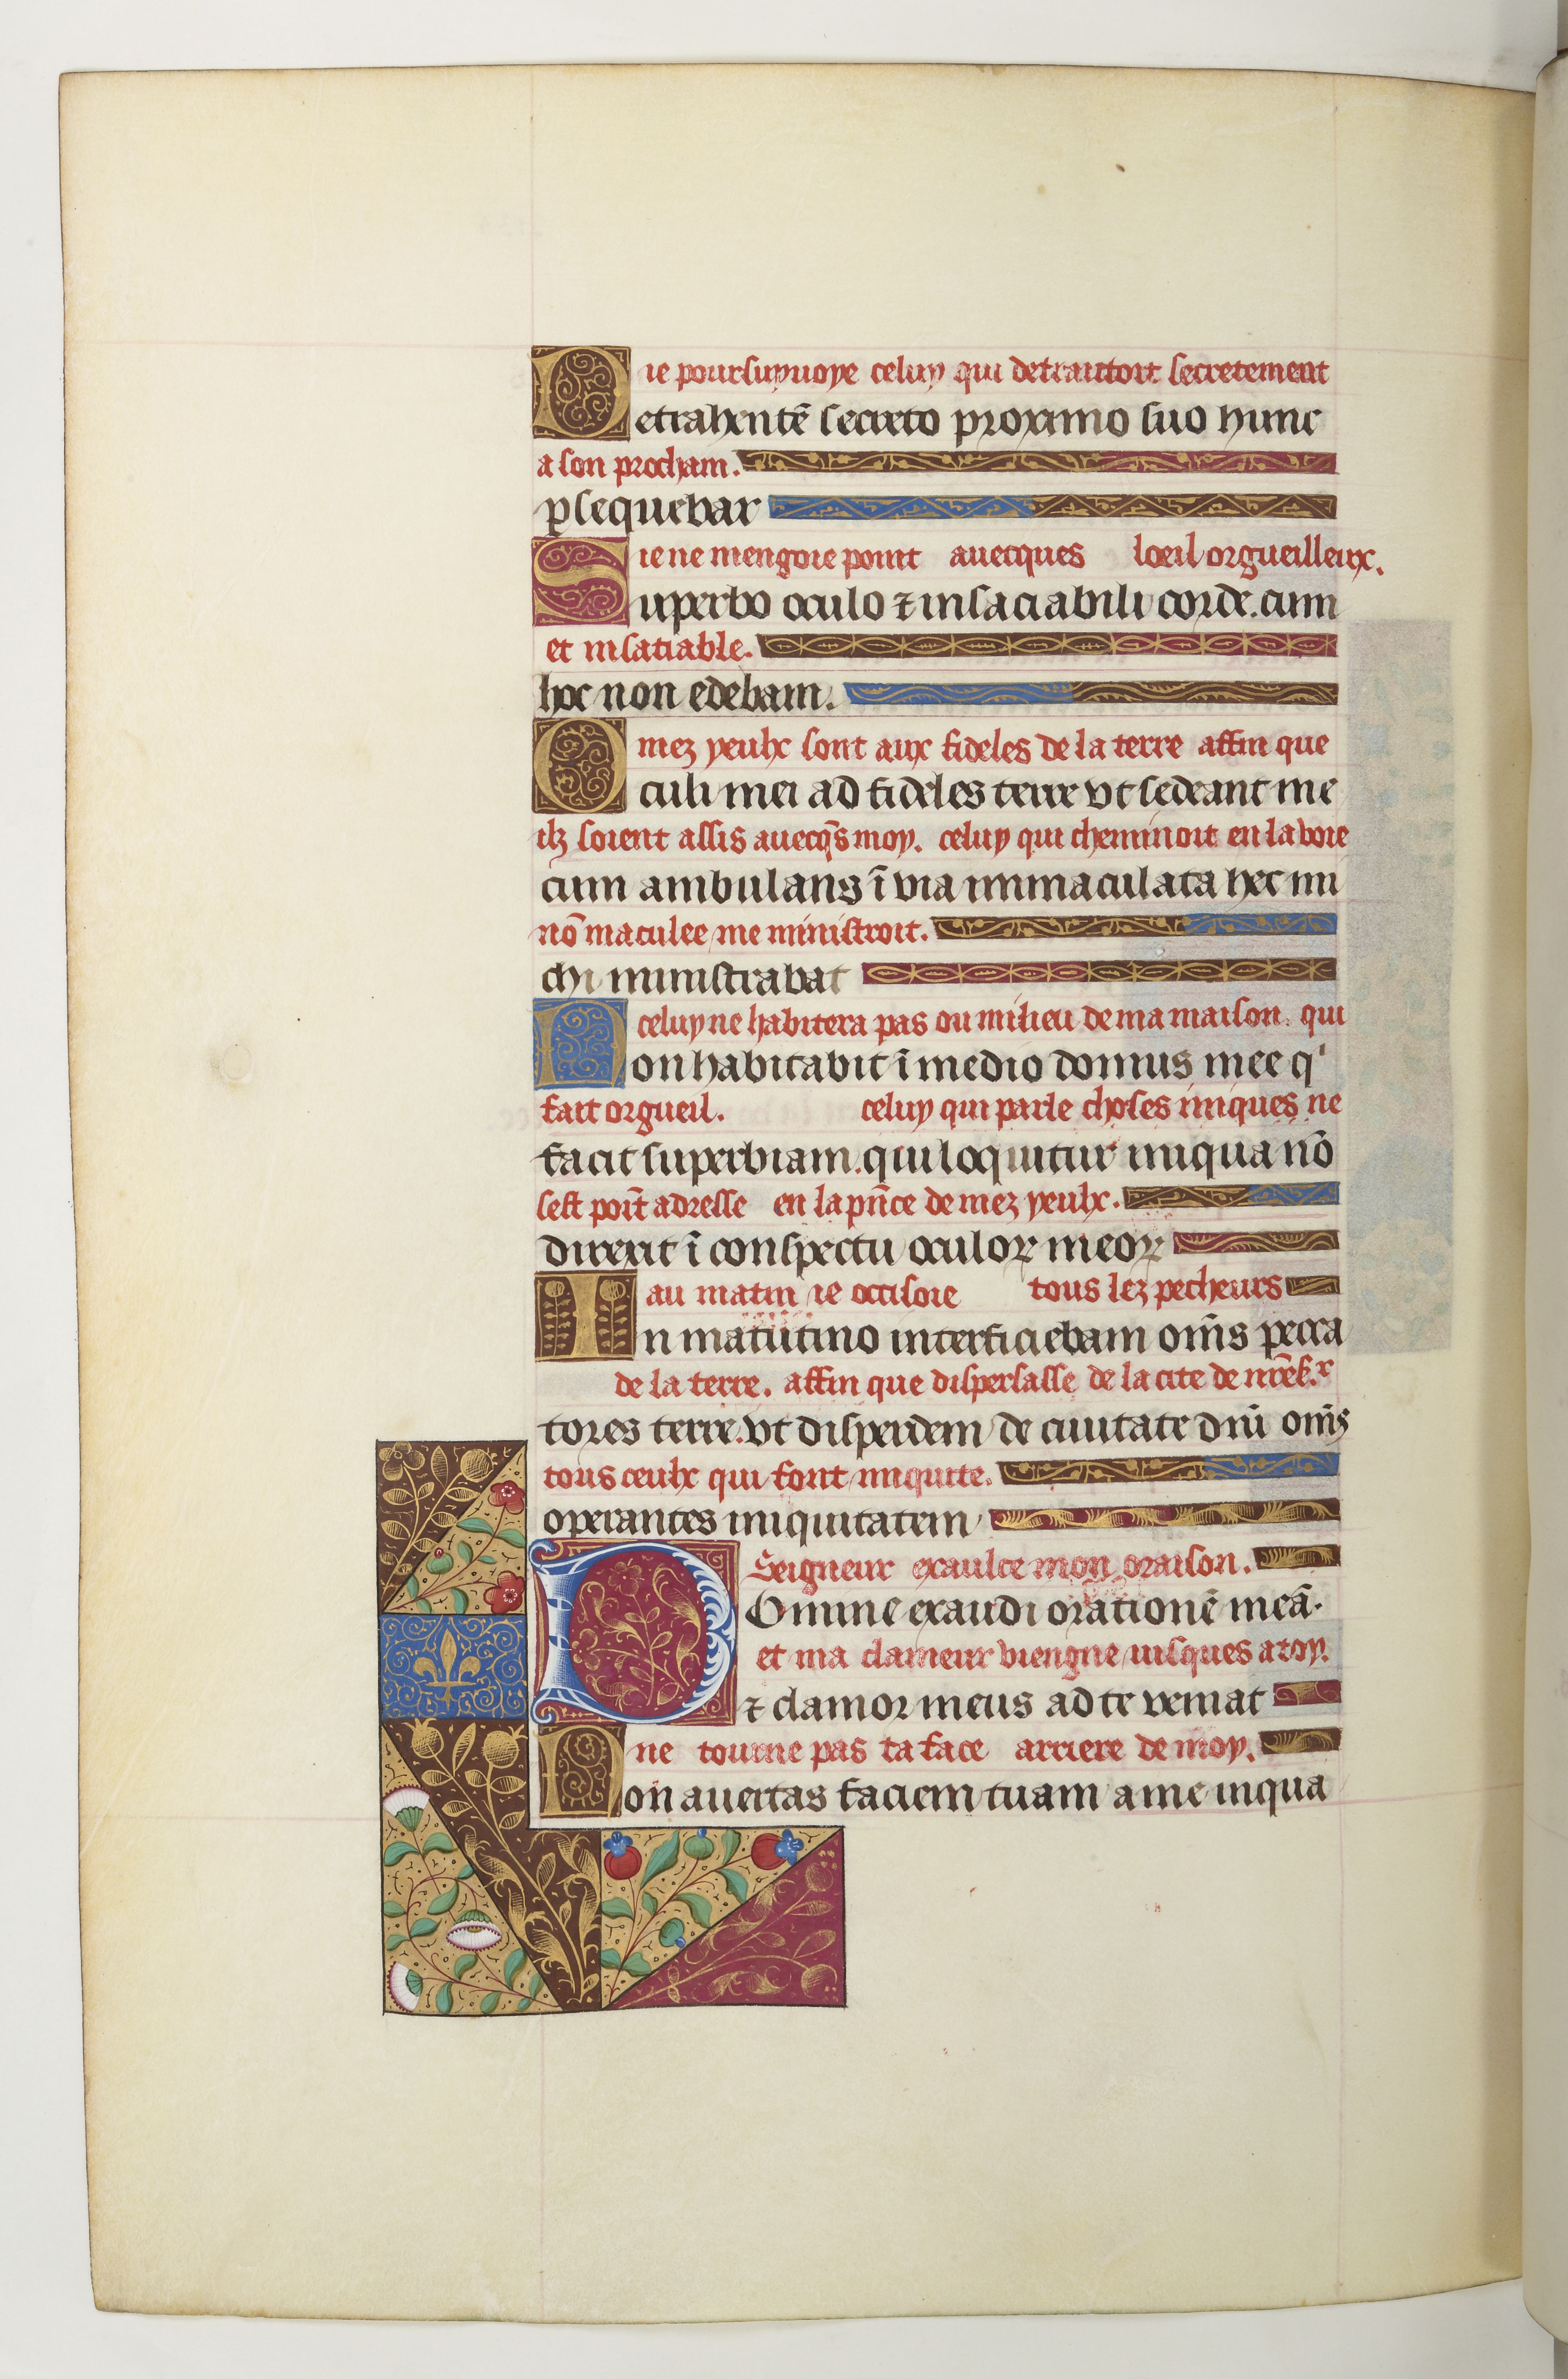 ie poursuyuoye celuy qui detraictoit secretement
Detrahentē secreto proximo suo hunc
a son procham.
psequebar
ie ne mengoie point auecques loeil orgueilleux.
Superbo oculo ⁊ insaciabili corde. cum
et insatiable.
hoc non edebam.
mez yeulx sont aux fideles de la terre affin que
Oculi mei ad fideles terre vt sedeant me
ilz soient assis auecq̄s moy. celuy qui cheminoit en la voie
cum ambulans ī via immaculata hec mi
nō maculee me ministroit.
chi ministrabat
celuy ne habitera pas ou milieu de ma maison. qui
Non habitabit ī medio domus mee qⁱ
fait orgueil. celuy qui parle choses iniques ne
facit superbiam. qui loquitur iniqua nō
sest poīt adresse en la pn̄ce de mez yeulx.
direxit ī conspectu oculoꝝ meoꝝ
au matin ie occisoie tous lez pecheurs
In matutino interficiebam om̄s pecca
de la terre. affin que dispersasse de la cite de
tores terre. vt disperdem de ciuitate dn̄i om̄s
tous ceulx qui font iniquite.
operantes iniquitatem
Seigneur exaulce mon oraison.
DOmine exaudi orationē meā.
et ma clameur viengne iusques a toy.
⁊ clamor meus ad te veniat
ne tourne pas ta face arriere de moy.
Non auertas faciem tuam a me inqua